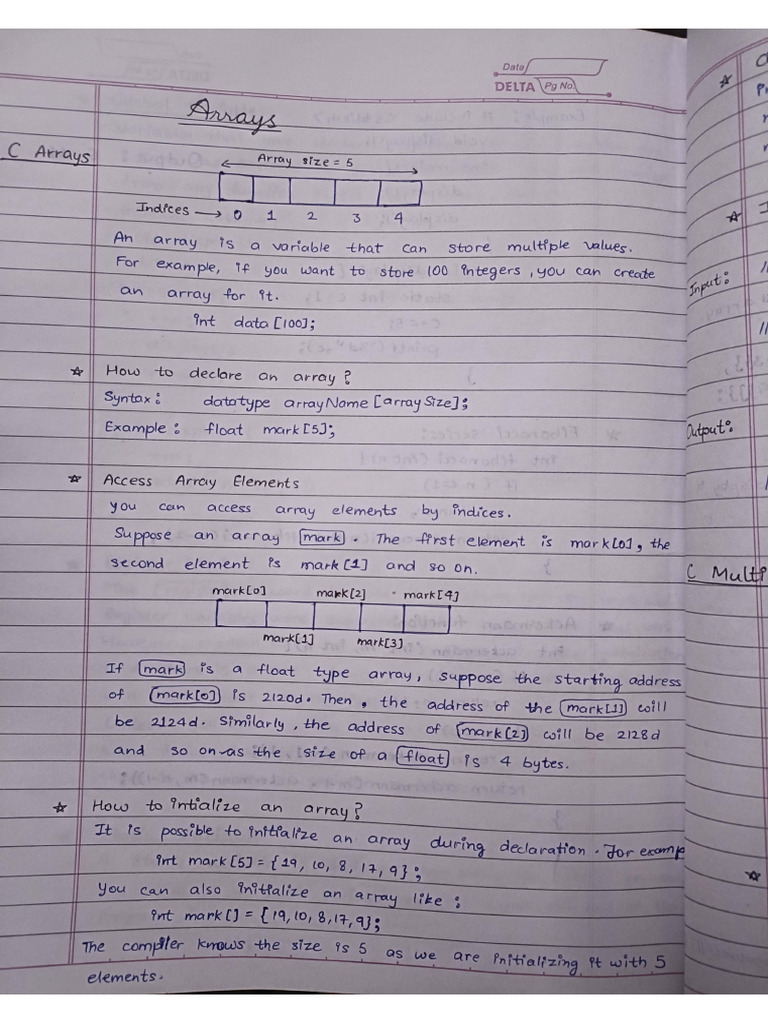 Data
DELTA Pg No.
Arrays
C Arrays
Array size = 5
Indices → 0 1 2 3 4
An array is a variable that can store multiple values.
For example, if you want to store 100 integers, you can create
an array for it.
int data[100];
☆ How to declare an array?
Syntax: datatype arrayName [arraySize];
Example: float mark[5];
☆ Access Array Elements
you can access array elements by indices.
Suppose an array mark. The first element is mark[0], the
second element is mark[1] and so on.
mark[0] mark[2] mark[4]
mark[1] mark[3]
If mark is a float type array, suppose the starting address
of mark[0] is 2120d. Then, the address of the mark[1] will
be 2124d. Similarly, the address of mark[2] will be 2128d
and so on-as the size of a float is 4 bytes.
☆ How to intialize an array?
It is possible to initialize an array during declaration. For examp
int mark[5] = {19, 10, 8, 17, 9};
You can also initialize an array like:
int mark[] = {19,10,8,17,9};
The compiler knows the size is 5 as we are initializing it with 5
elements.
☆
☆
Input:
Output:
C Multi
☆